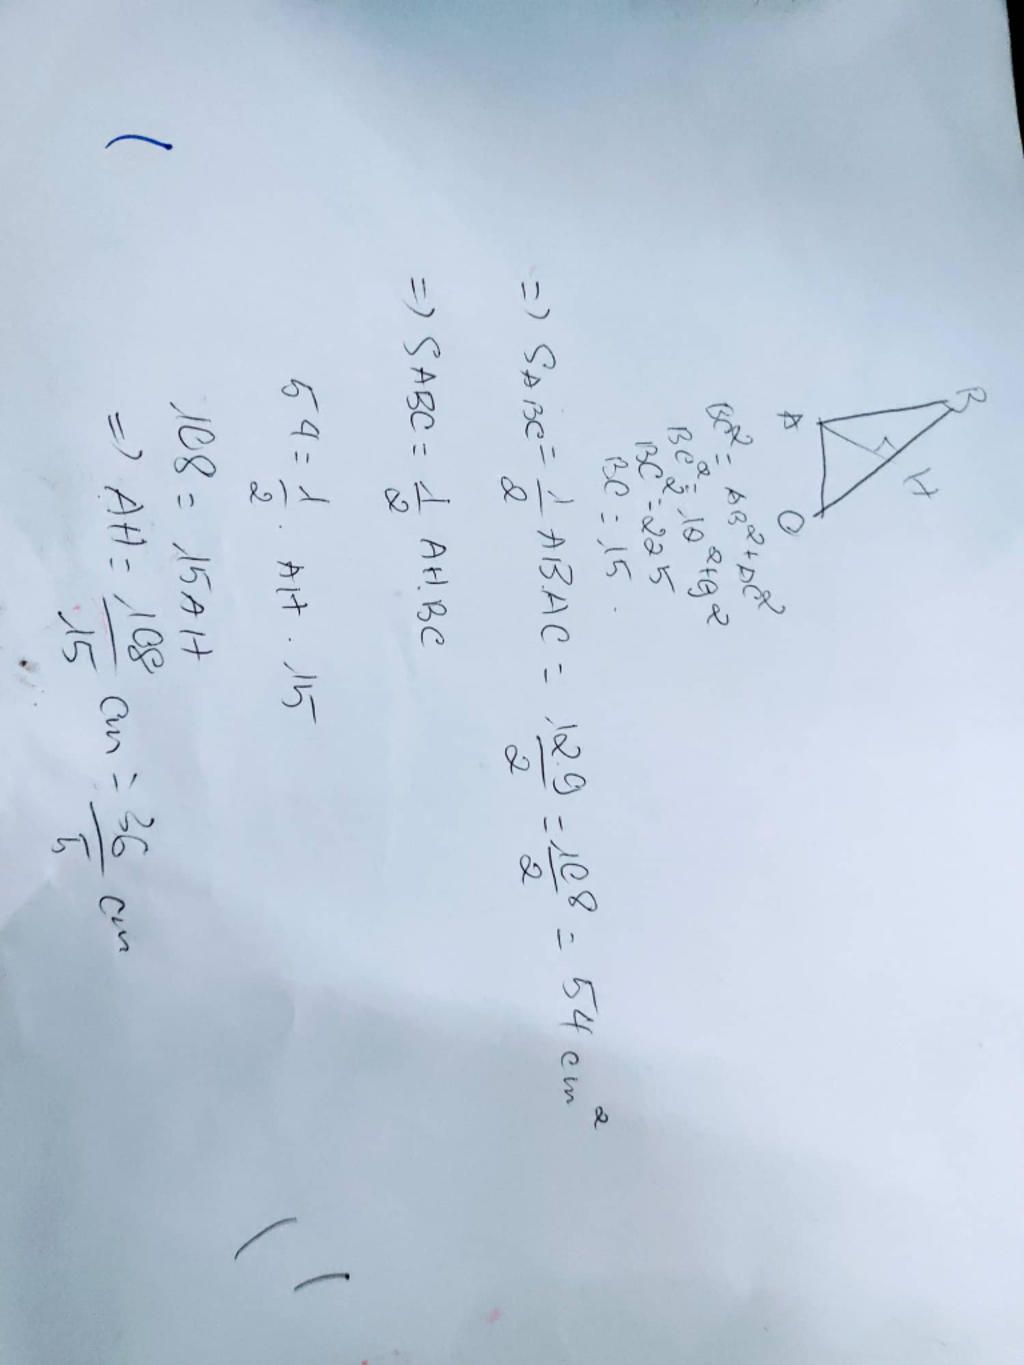 B
A
H
C
BC² = AB² + AC²
BC² = 12² + 9²
BC² = 225
BC = 15.
=> SABC = 1/2 AB.AC = 12.9/2 = 108/2 = 54 cm²
=> SABC = 1/2 AH.BC
54 = 1/2 . AH . 15
108 = 15AH
=> AH = 108/15 cm = 36/5 cm